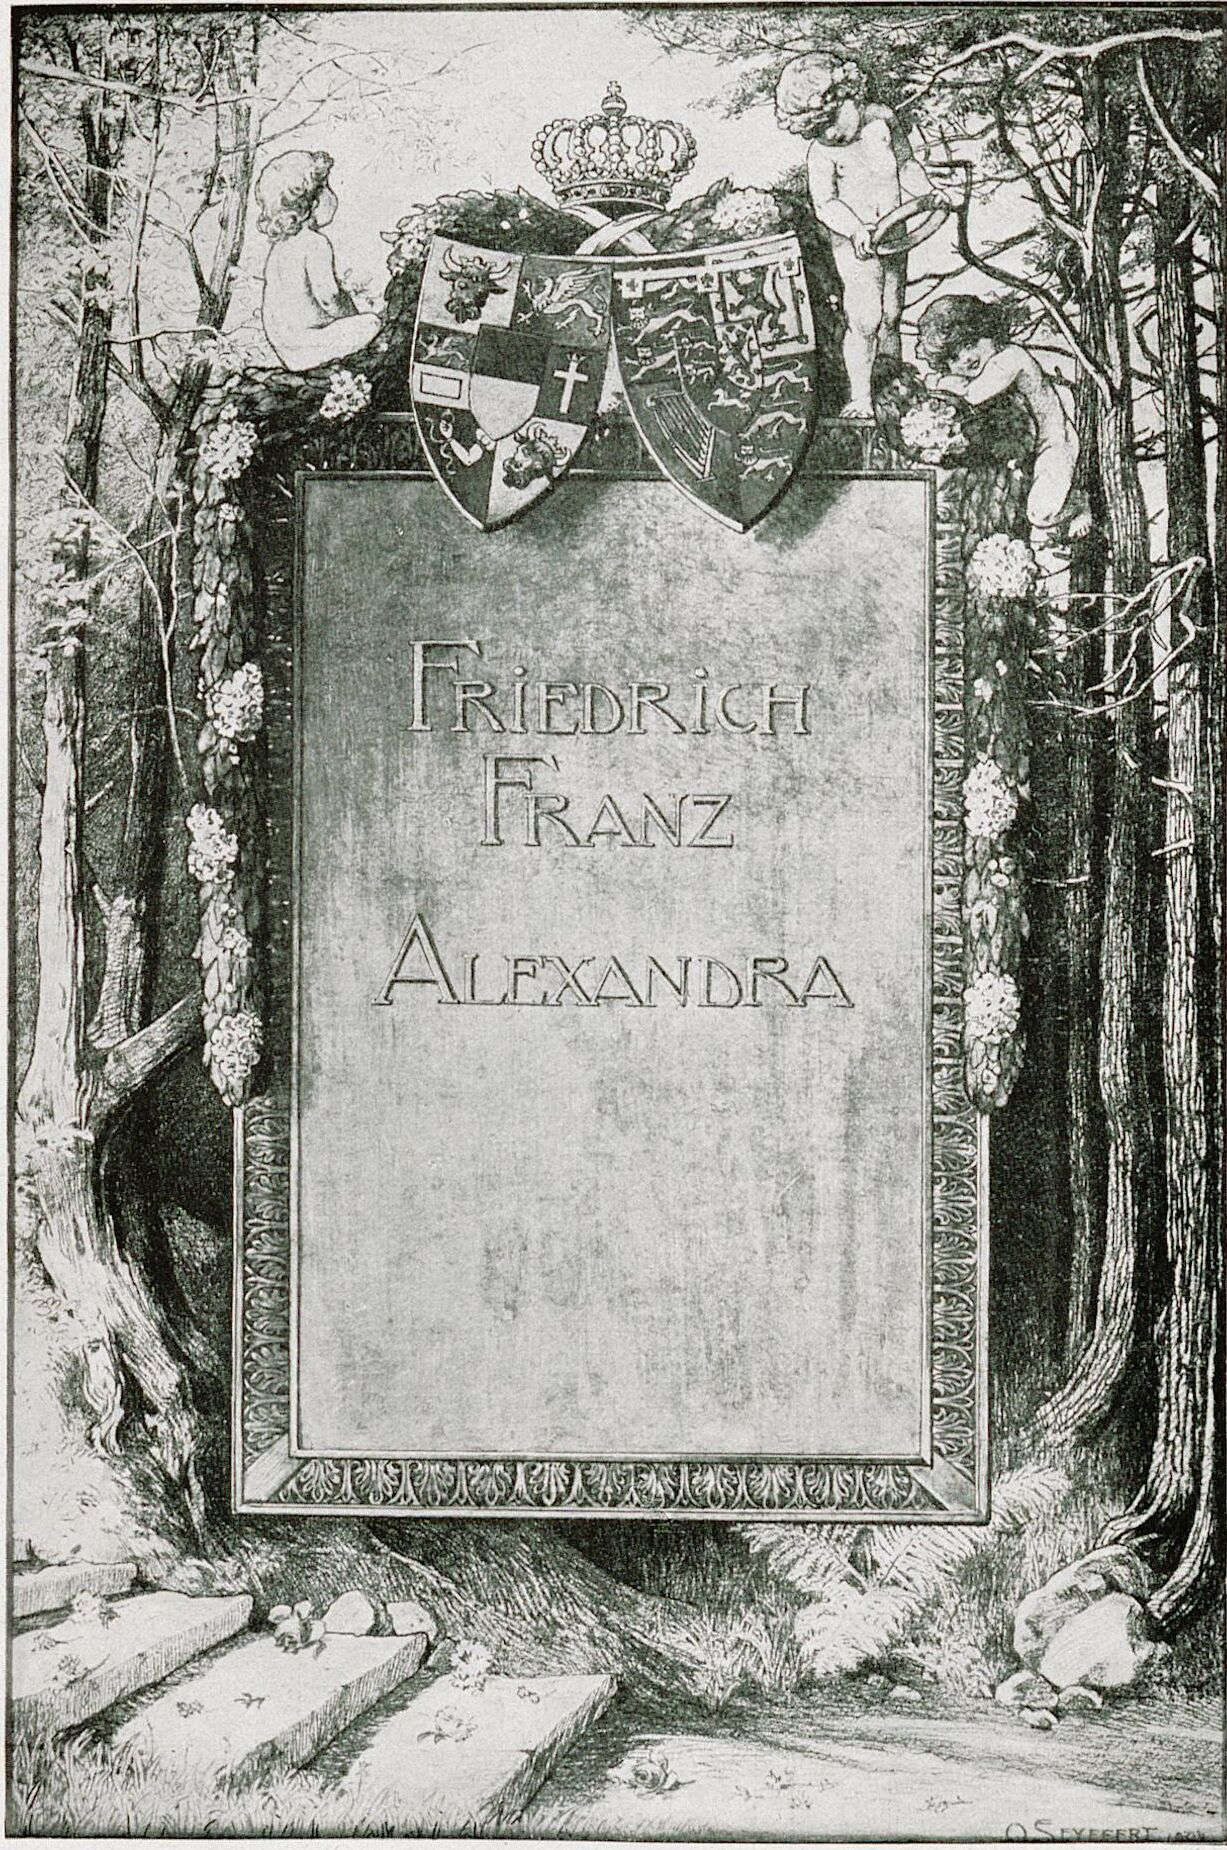 FRIEDRICH
FRANZ
ALEXANDRA
O SEYFFERT